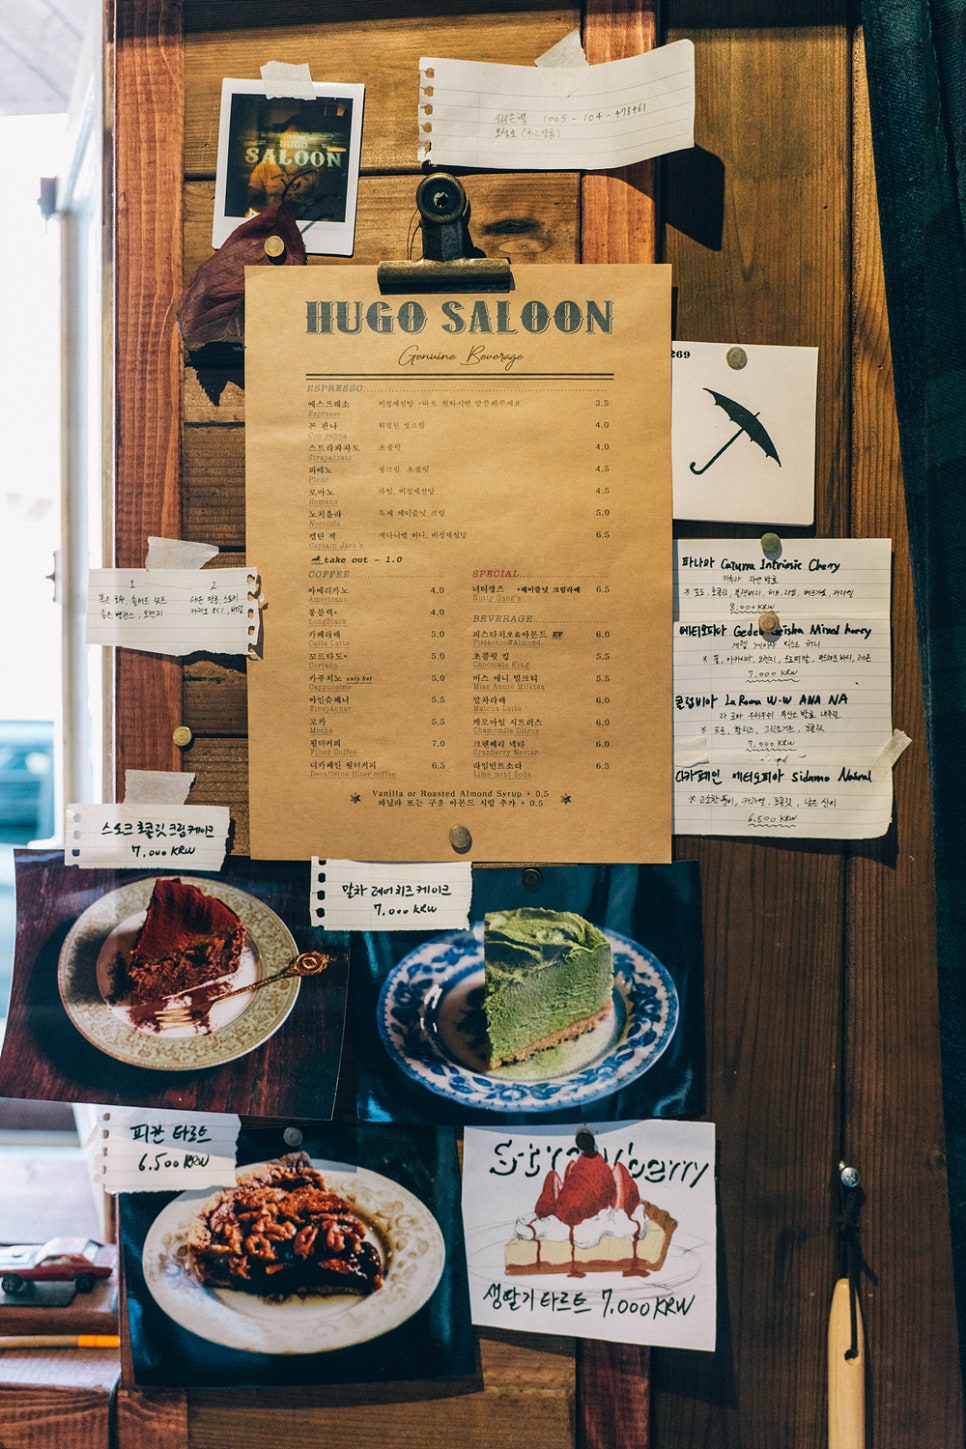 HUGO
SALOON
1005-104-478461
HUGO SALOON
Genuine Beverage
ESPRESSO
에스프레소 비정제설탕 *따로 원하시면 말씀해주세요 3.5
Espresso
콘 판나 휘핑된 생크림 4.0
Con panna
스트라파차토 초콜릿 4.0
Strapazzato
피에노 생크림, 초콜릿 4.5
Pieno
로마노 라임, 비정제설탕 4.5
Romano
노치올라 특제 헤이즐넛 크림 5.0
Nocciola
캡틴 잭 잭다니엘 허니, 비정제설탕 6.5
Captain Jack's
take out - 1.0
COFFEE
아메리카노 4.0
Americano
롱블랙* 4.0
LongBlack
카페라떼 5.0
Caffe Latte
코르타도* 5.0
Cortado
카푸치노 only hot 5.0
Cappuccino
아인슈페너 5.5
Einspanner
모카 5.5
Mocha
필터커피 7.0
Filter Coffee
디카페인 필터커피 6.5
Decaffeine filter coffee
SPECIAL
너티갱즈 *헤이즐넛 크림라떼 6.5
Nutty Gang's
BEVERAGE
피스타치오&아몬드 6.0
Pistachio&Almond
초콜릿 킹 5.5
Chocolate King
미스 애니 밀크티 5.5
Miss Annie Milktea
말차라떼 6.0
Matcha Latte
캐모마일 시트러스 6.0
Chamomile Citrus
크랜베리 넥타 6.0
Cranberry Nectar
라임민트소다 6.5
Lime mint Soda
Vanilla or Roasted Almond Syrup + 0.5
바닐라 또는 구운 아몬드 시럽 추가 + 0.5
269
파나마 Catuma Intrinsic Cherry
8,000KRW
에티오피아 Gedeb Geisha Mixed honey
7,000KRW
콜롬비아 La Roca W.W ANA NA
7,000KRW
디카페인 에티오피아 Sidamo Natural
6,500KRW
1 2
스모크 초콜릿 크림케이크
7,000 KRW
말차 레어치즈케이크
7,000 KRW
피칸 타르트
6,500 KRW
Strawberry
생딸기타르트 7,000KRW